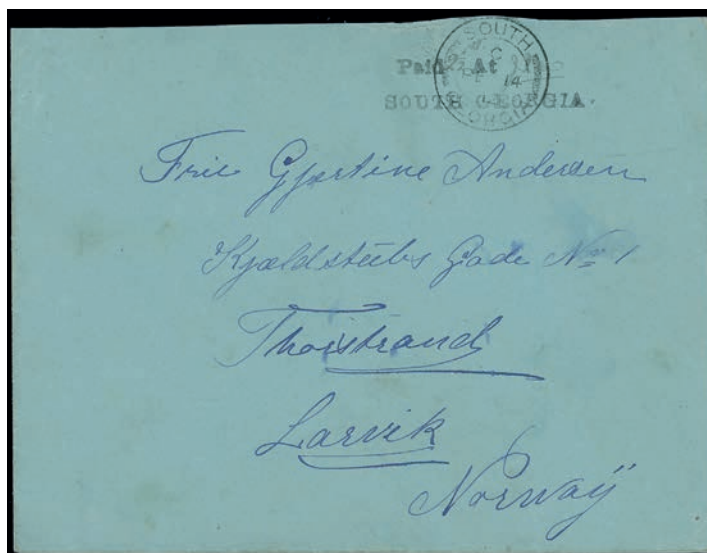 Paid At
SOUTH GEORGIA.
SOUTH
14
GEORGIA
Frue Gjertine Andersen
Kjældstubs Gade No 1
Thorstrand
Larvik
Norway